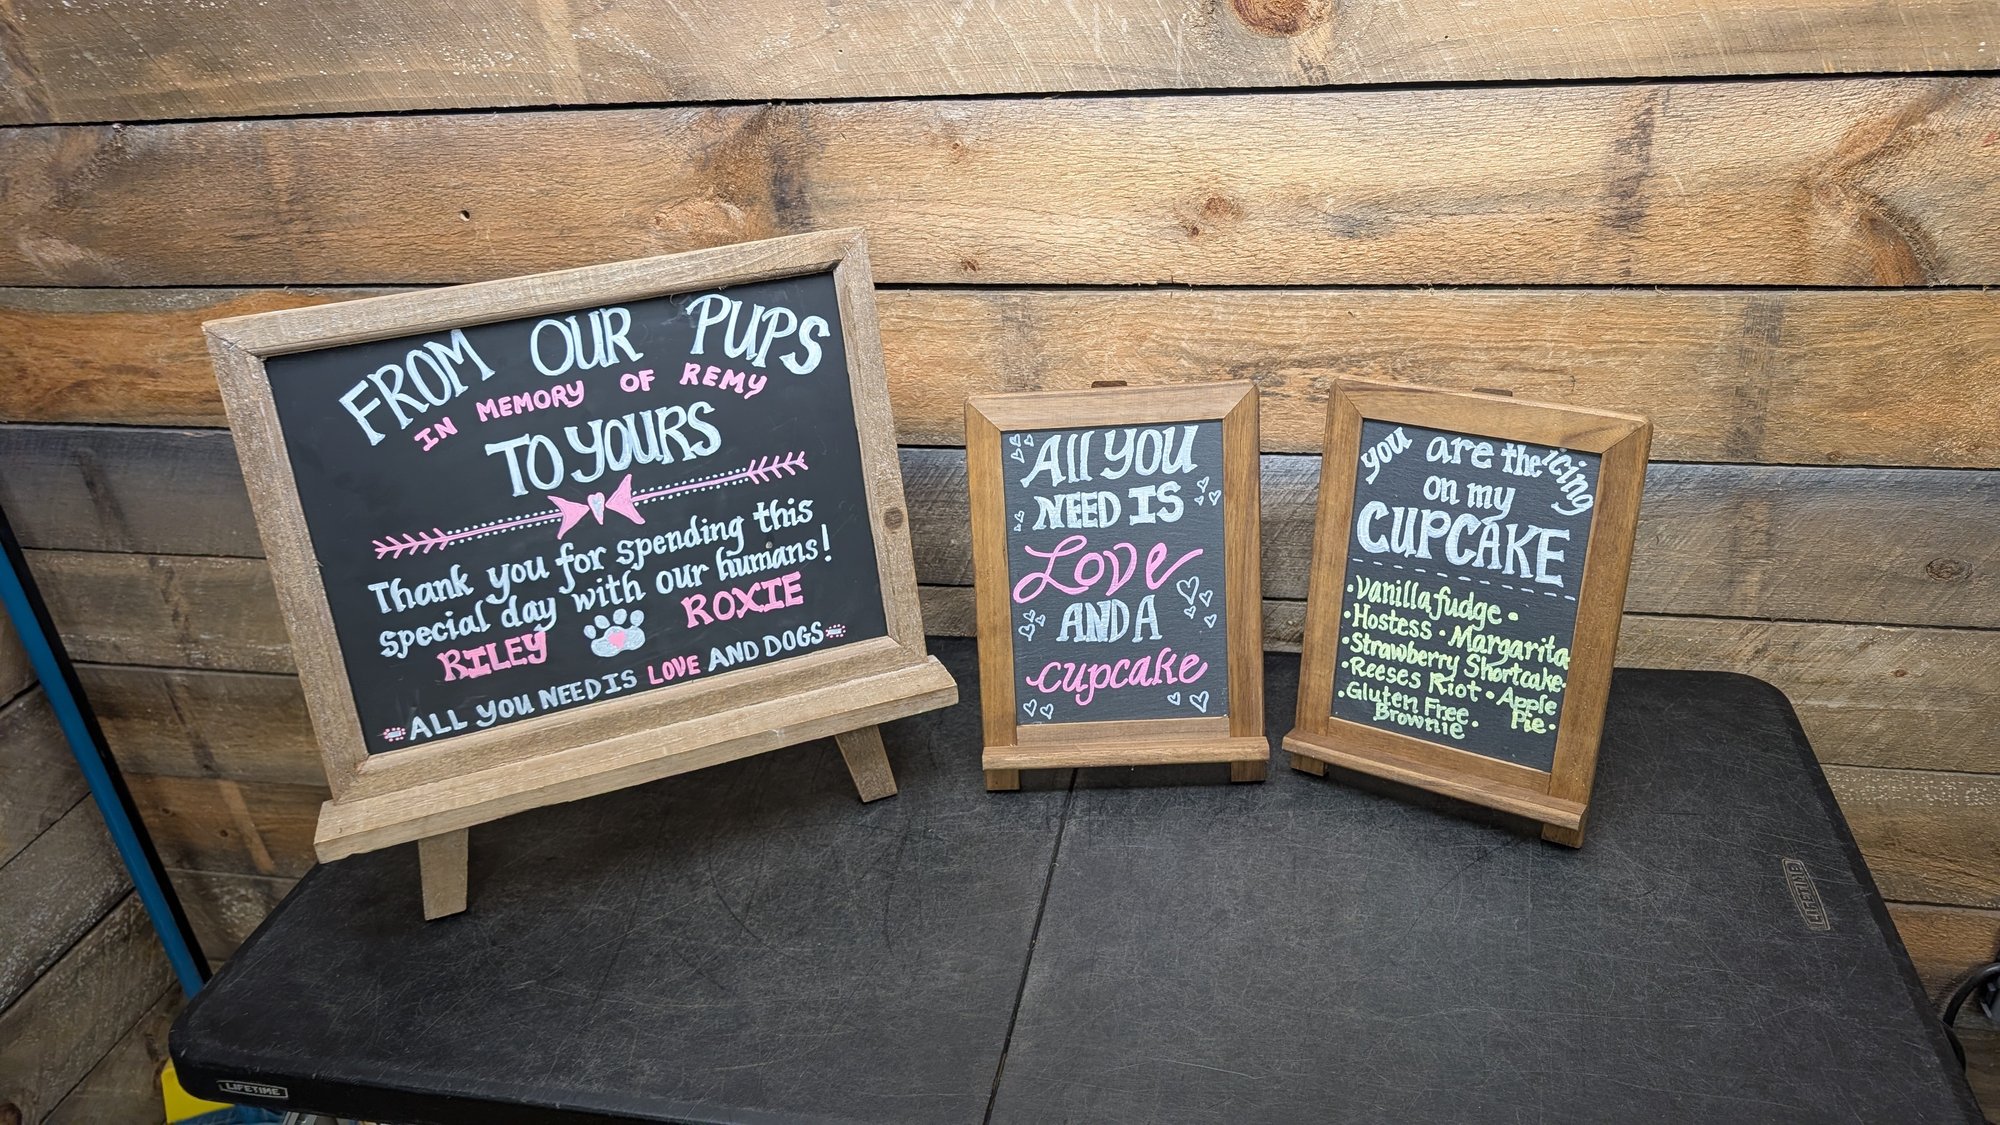 FROM OUR PUPS
IN MEMORY OF REMY
TO YOURS
Thank you for spending this
special day with our humans!
RILEY ROXIE
ALL YOU NEED IS LOVE AND DOGS
All YOU
NEED IS
Love
AND A
cupcake
you are the icing
on my
CUPCAKE
• Vanilla fudge •
• Hostess • Margarita
• Strawberry Shortcake •
• Reeses Riot • Apple
Pie •
• Gluten Free •
Brownie
LIFETIME
LIFETIME